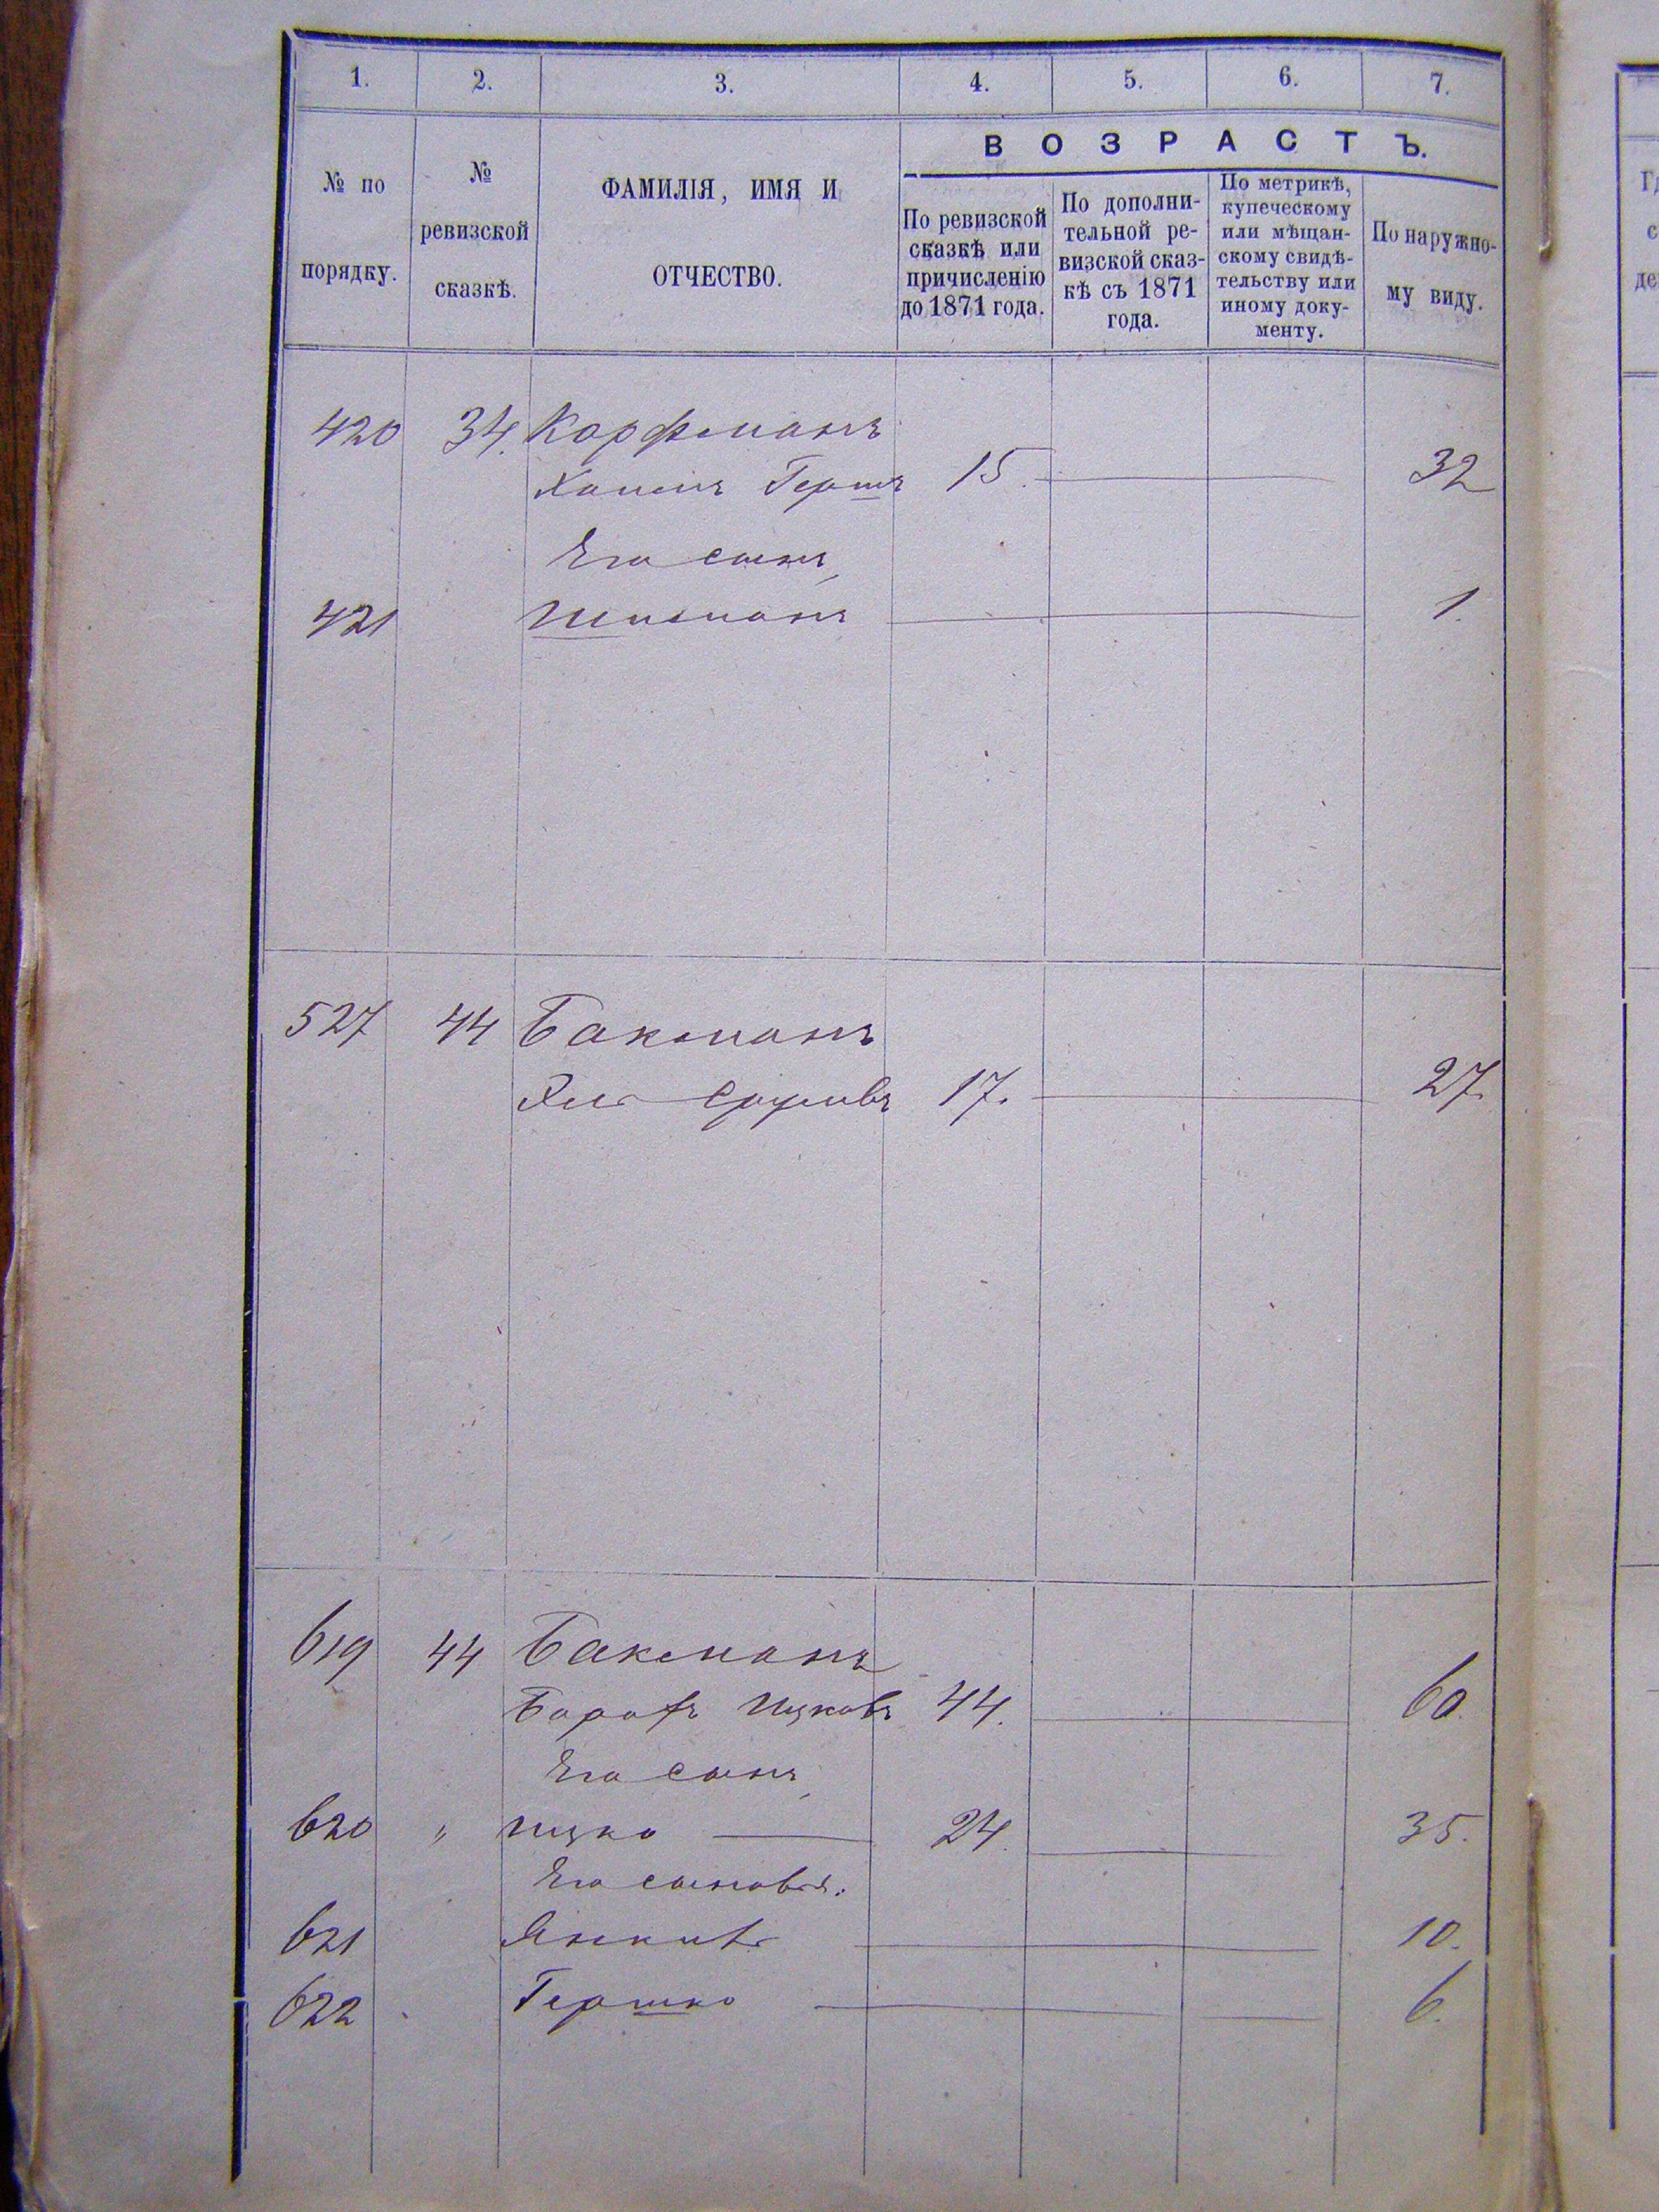 1. 2. 3. 4. 5. 6. 7.
№ по порядку.
№ ревизской сказкѣ.
ФАМИЛІЯ, ИМЯ И ОТЧЕСТВО.
ВОЗРАСТЪ.
По ревизской сказкѣ или причисленію до 1871 года.
По дополни-
тельной ре-
визской сказ-
кѣ съ 1871
года.
По метрикѣ,
купеческому
или мѣщан-
скому свидѣ-
тельству или
иному доку-
менту.
По наружно-
му виду.
420 34. Корфманъ
Хаимъ Гершъ 15. 32
Его сынъ,
421 Шлиманъ 1.
527 44 Бакманъ
Срулевъ 17. 27.
619 44 Бакманъ
Борохъ Ицковъ 44. 60.
Его сынъ,
620 " Ицко 24. 35.
Его сыновья:
621 Янкель 10.
622 Гершко 6.